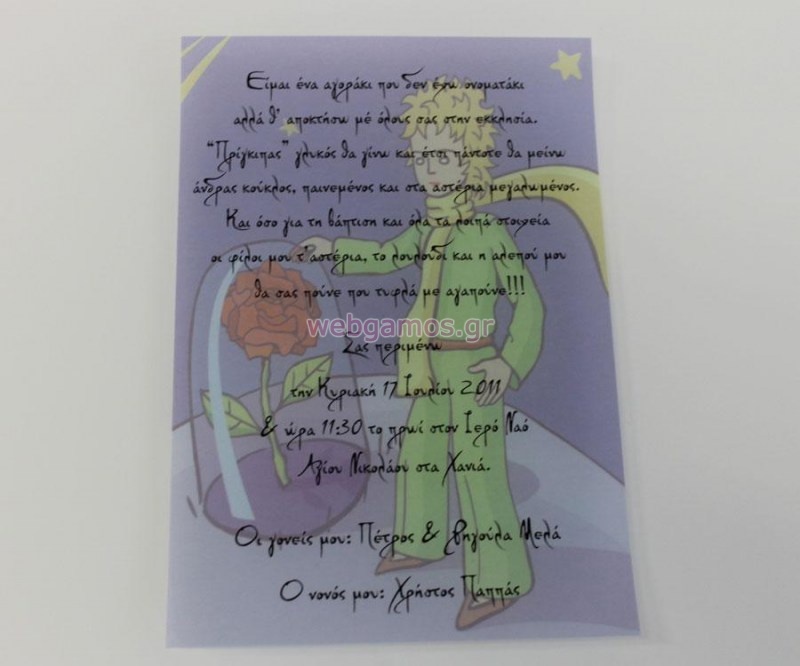 Είμαι ένα αγοράκι που δεν έχω ονοματάκι
αλλά θ' αποκτήσω μέ όλους σας στην εκκλησία.
"Πρίγκιπας" γλυκός θα γίνω και έτσι πάντοτε θα μείνω
άνδρας κούκλος, παινεμένος και στα αστέρια μεγαλωμένος.
Και όσο για τη βάπτιση και όλα τα λοιπά στοιχεία
οι φίλοι μου τ'αστέρια, το λουλούδι και η αλεπού μου
θα σας πούνε που τυφλά με αγαπούνε!!!
webgamos.gr
Σας περιμένω
την Κυριακή 17 Ιουλίου 2011
& ώρα 11:30 το πρωί στον Ιερό Ναό
Αγίου Νικολάου στα Χανιά.
Οι γονείς μου: Πέτρος & Μελά
Ο νονός μου: Χρήστος Παππάς